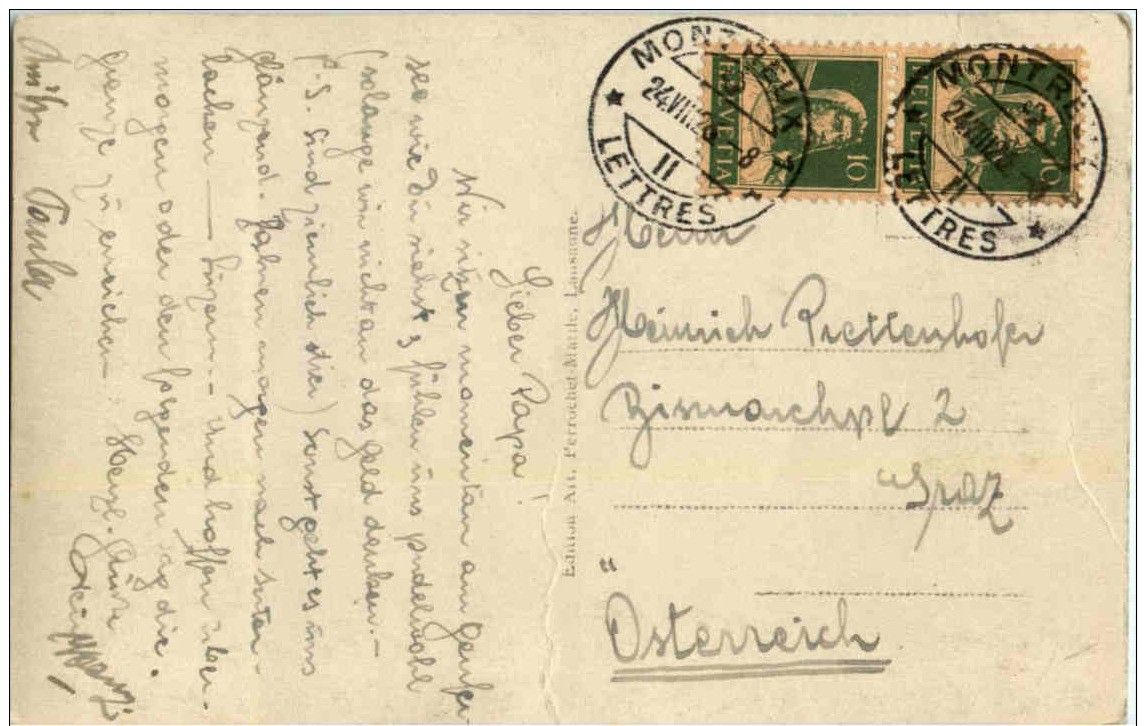 Lieber Papa!
Wir sitzen momentan am Genfer-
see wie Du siehst, fühlen uns pudelwohl
(solange wir nicht an das Geld denken.-
P.S. Sind ziemlich stier) Sonst geht es uns
glänzend. Fahren morgen nach Inter-
lacken — Luzern.- und hoffen über-
morgen oder den folgenden Tag die
Grenze zu erreichen. Herzl. Grüße
Paula
MONTREUX
24.VIII.26 - 8
II
LETTRES
HELVETIA
10
MONTREUX
24.VIII.26 - 8
II
LETTRES
HELVETIA
10
Herrn
Heinrich Prettenhofer
Bismarckpl 2
Graz
"
Österreich
Edition Art. Perrochet-Matile, Lausanne.